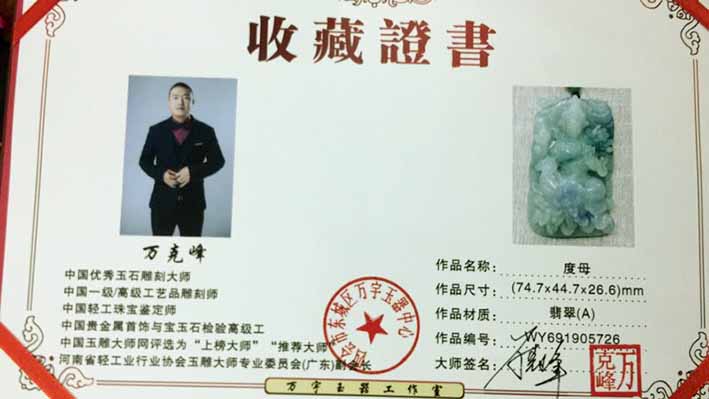 收藏證書
万克峰
中国优秀玉石雕刻大师
中国一级/高级工艺品雕刻师
中国轻工珠宝鉴定师
中国贵金属首饰与宝玉石检验高级工
中国玉雕大师网评选为“上榜大师”“推荐大师”
河南省轻工业行业协会玉雕大师专业委员会(广东)副会长
四会市东城区万宇玉器中心
作品名称: 度母
作品尺寸: (74.7x44.7x26.6)mm
作品材质: 翡翠(A)
作品编号: WY691905726
大师签名: 万克峰
万克峰
万宇玉器工作室